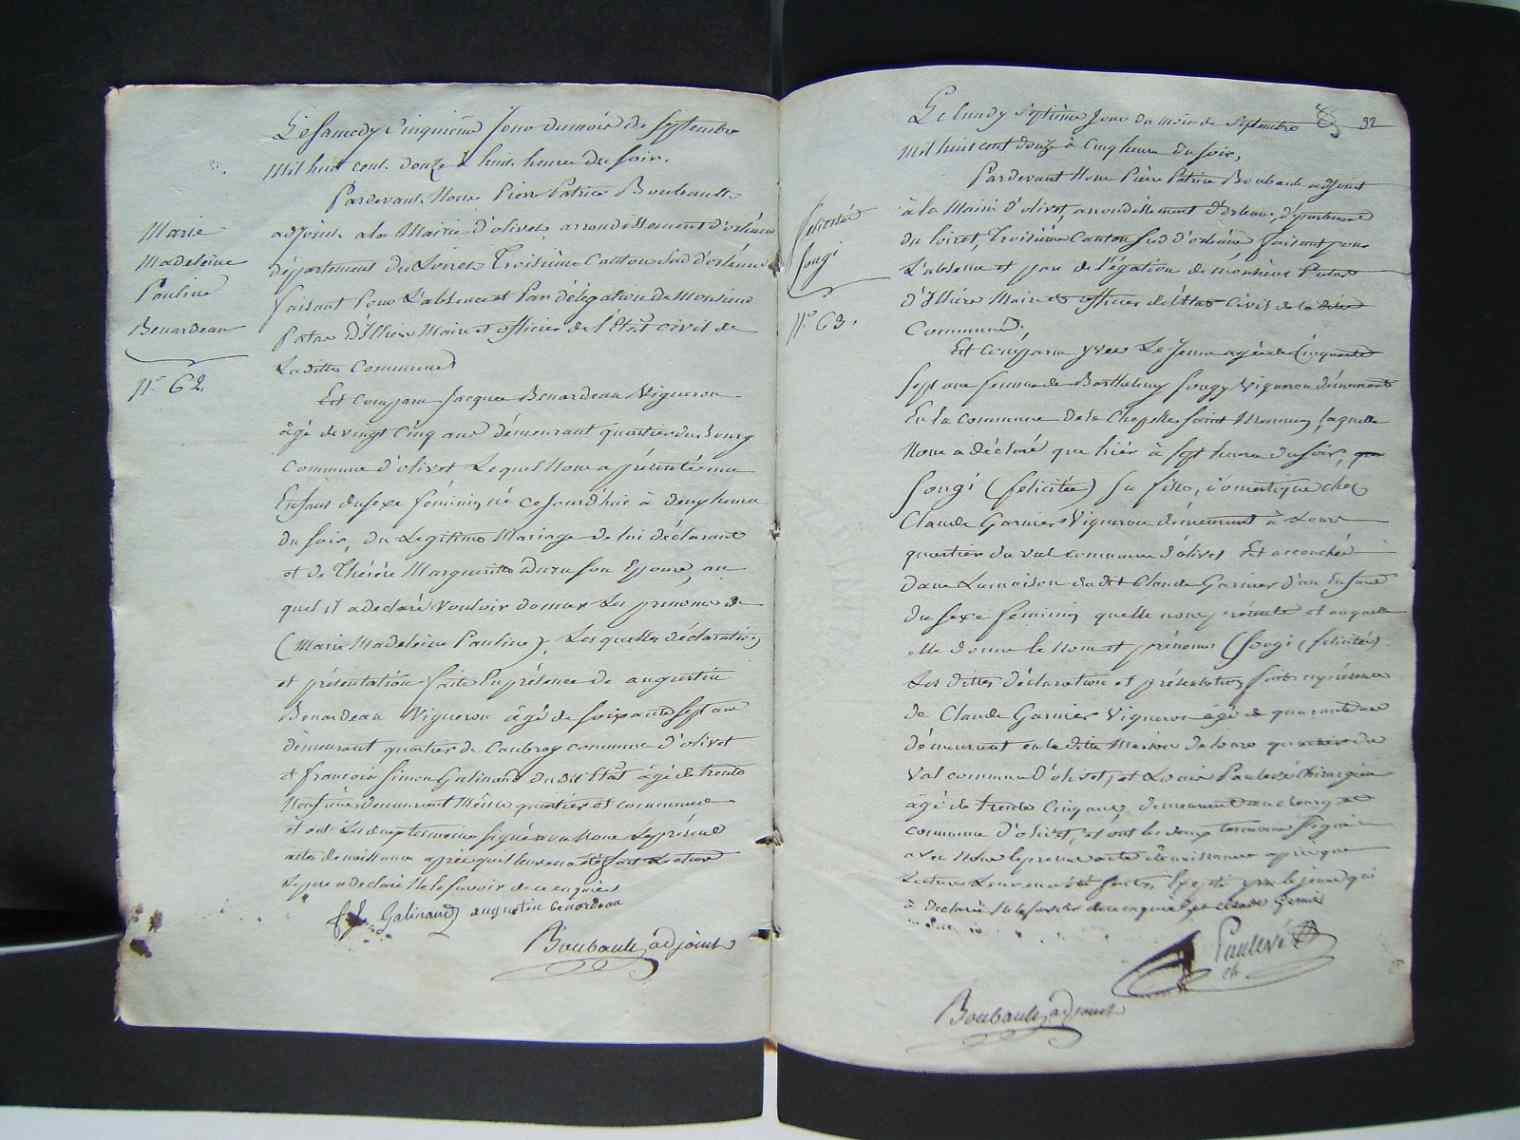 Le samedy cinquieme jour du mois de septembre
mil huit cent douze à huit heures du soir.
Pardevant Nous Pierre Patrice Boubault
adjoint a la Mairie d'olivet arrondissement d'orléans
département du Loiret Troisieme Canton sud d'orléans
faisant pour L'absence et par délégation de Monsieur
Patas D'Illiers Maire et officier de l'Etat civil de
La ditte Commune
Marie
Madeleine
Pauline
Benardeau
N° 62.
Est comparu Jacques Benardeau Vigneron
âgé de vingt cinq ans demeurant quartier du bourg
Commune d'olivet Lequel Nous a présenté un
Enfant du sexe féminin né ce jourd'hui à deux heures
Du soir, du Legitime Mariage de lui déclarant
et de Thérèse Margueritte Duru son Epouse, au
quel il a déclaré vouloir donner Les prenoms de
(Marie Madeleine Pauline). Les quelles déclaration
et présentation faite En présence de augustin
Benardeau Vigneron âgé de soixante sept ans
demeurant quartier de Caubray commune d'olivet
et françois Simon Galinand du dit Etat âgé de trente
Neuf ans demeurant Même quartier et commune
et ont Les deux temoins signé avec Nous Le présent
acte de naissance après que Lecture a été fait
Le pere a déclaré Ne le savoir de ce enquis
f. S. Galinand augustin benardeau
Boubault adjoint
32
Le lundy septième jour du mois de septembre
mil huit cent douze à cinq heures du soir,
Pardevant Nous Pierre Patrice Boubault adjoint
à la Mairie d'olivet, arrondissement d'Orléans, département
du loiret, Troisième Canton sud d'orléans, faisant pour
L'absence et par délégation de monsieur Patas
D'Illiers Maire et officier de l'état civil de la dite
Commune.
felicité
Sougi
N° 63.
Est comparu Le Jeune agée de Cinquante
sept ans femme de Barthelemy Sougy Vigneron demeurant
En la commune de la Chapelle saint Mesmin, laquelle
Nous a déclaré que hier à sept heures du soir, que
Sougi (felicitée) sa fille, domestique chez
Claude Garnier Vigneron demeurant à
quartier du val commune d'olivet Est accouchée
dans La maison du dit Claude Garnier d'un Enfant
du sexe féminin quelle nous présente et auquel
elle donne le Nom et prénoms (Sougi (felicitée)
Les dittes déclaration et présentation faites en présence
de Claude Garnier Vigneron âgé de quarante ans
demeurant en la ditte Maison de quartier du
Val commune D'olivet, et Louis Paulevé chirurgien
âgé de trente cinq ans, demeurant au bourg et
commune d'olivet, et ont les deux temoins signé
avec Nous le présent acte de naissance après que
Lecture Leur en a été faite, Excepté le jeune qui
a déclaré Ne le savoir de ce enquis et Claude Garnier
Paulevé
ch
Boubault adjoint